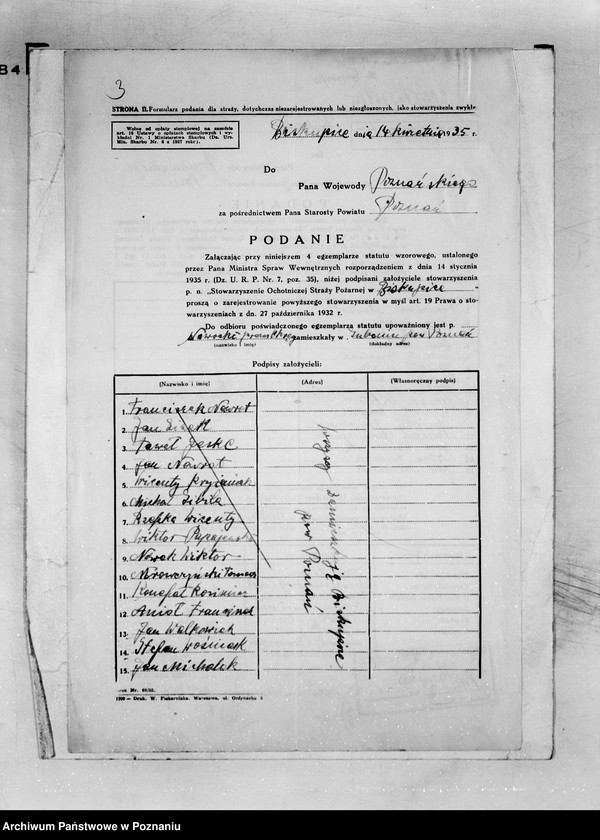 B4
3
STRONA II. Formularz podania dla straży, dotychczas niezarejestrowanych lub niezgłoszonych, jako stowarzyszenia zwykłe
Wolne od opłaty stemplowej na zasadzie
art. 16 Ustawy o opłatach stemplowych i wy-
kładni Nr. 1 Ministerstwa Skarbu (Dz. Urz.
Min. Skarbu Nr. 6 z 1927 roku).
Biskupice dnia 14 kwietnia 1935 r.
Do
Pana Wojewody Poznańskiego
za pośrednictwem Pana Starosty Powiatu Poznań
PODANIE
Załączając przy niniejszem 4 egzemplarze statutu wzorowego, ustalonego
przez Pana Ministra Spraw Wewnętrznych rozporządzeniem z dnia 14 stycznia
1935 r. (Dz. U. R. P. Nr. 7, poz. 35), niżej podpisani założyciele stowarzyszenia
p. n. „Stowarzyszenie Ochotniczej Straży Pożarnej w Biskupice
proszą o zarejestrowanie powyższego stowarzyszenia w myśl art. 19 Prawa o sto-
warzyszeniach z dn. 27 października 1932 r.
Do odbioru poświadczonego egzemplarza statutu upoważniony jest p.
zamieszkały w
(nazwisko i imię) (dokładny adres)
Podpisy założycieli:
(Nazwisko i imię) (Adres) (Własnoręczny podpis)
1. Franciszek Nawrot
2. Jan
3. Paweł
4. Jan Nawrot
5. Wincenty
6. Michał
7. Rzepka Wincenty
8. Wiktor
9. Nowak Wiktor
10. Mrowczyński Tomasz
11. Konopał Kazimierz
12. Anioł Franciszek
13. Jan Walkowiak
14. Stefan Woźniak
15. Jan Michalak
wszyscy zamieszkują Biskupice
pow Poznań
Nr. 60/35.
1200 — Druk. W. Piekarniaka. Warszawa, ul. Ordynacka 5
Archiwum Państwowe w Poznaniu